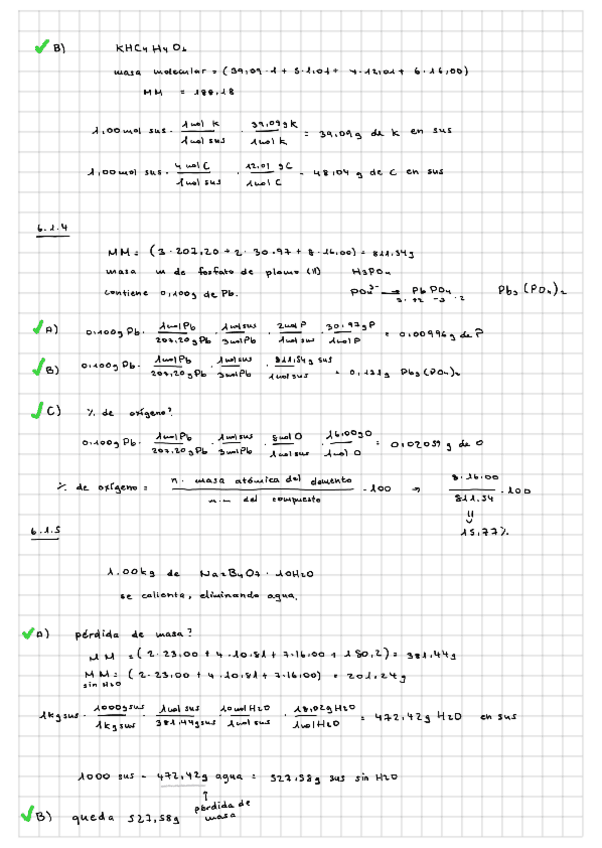 B) KHC4H4O6
masa molecular = (39,09·1 + 5·1,01 + 4·12,01 + 6·16,00)
MM = 188,18
1,00mol sus · 1mol K / 1mol sus · 39,09g K / 1mol K = 39,09g de K en sus
1,00mol sus · 4molC / 1molsus · 12,01 gC / 1molC = 48,04 g de C en sus
6.1.4
MM= (3·207,20 + 2·30,97 + 8·16,00) = 811,54g
masa m de fosfato de plomo (II) H3PO4
contiene 0,100g de Pb. PO4³⁻ → PbPO4 Pb3(PO4)2
A) 0,100g Pb · 1molPb / 207,20gPb · 1molsus / 3molPb · 2molP / 1molsus · 30,97gP / 1molP = 0,00996g de P
B) 0,100g Pb · 1molPb / 207,20gPb · 1molsus / 3molPb · 811,54g sus / 1molsus = 0,131g Pb3(PO4)2
C) % de oxígeno?
0,100g Pb · 1molPb / 207,20gPb · 1molsus / 3molPb · 8molO / 1molsus · 16,00gO / 1molO = 0,02059 g de O
% de oxígeno = n· masa atómica del elemento / n.m del compuesto · 100 → 8·16,00 / 811,54 · 100
15,77%
6.1.5
1,00kg de Na2B4O7 · 10H2O
se calienta, eliminando agua.
A) pérdida de masa?
MM = (2·23,00 + 4·10,81 + 7·16,00 + 180,2) = 381,44g
MM = (2·23,00 + 4·10,81 + 7·16,00) = 201,24g
sin H2O
1kgsus · 1000gsus / 1kgsus · 1molsus / 381,44gsus · 10molH2O / 1molsus · 18,02gH2O / 1molH2O = 472,42g H2O en sus
1000 sus - 472,42g agua = 527,58g sus sin H2O
pérdida de
masa
B) queda 527,58g